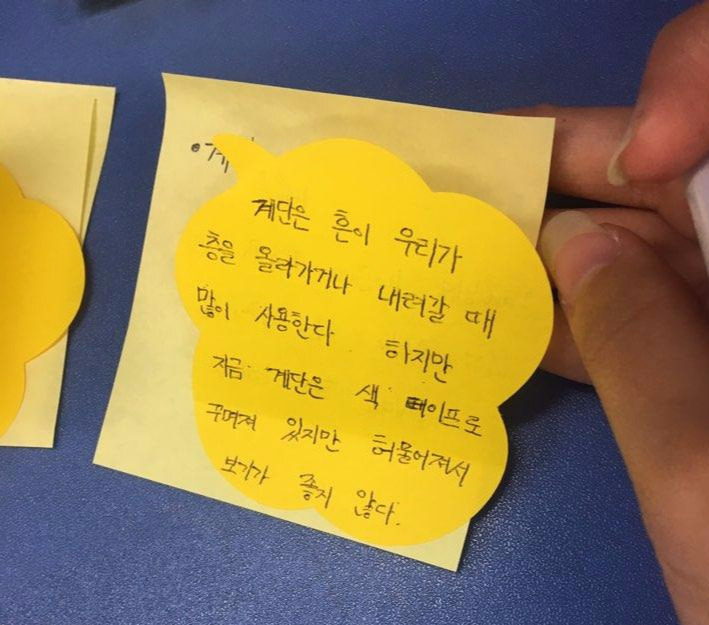 계단은 흔이 우리가
층을 올라가거나 내려갈 때
많이 사용한다 하지만
지금 계단은 색 테이프로
꾸며져 있지만 허물어져서
보기가 좋지 않다.